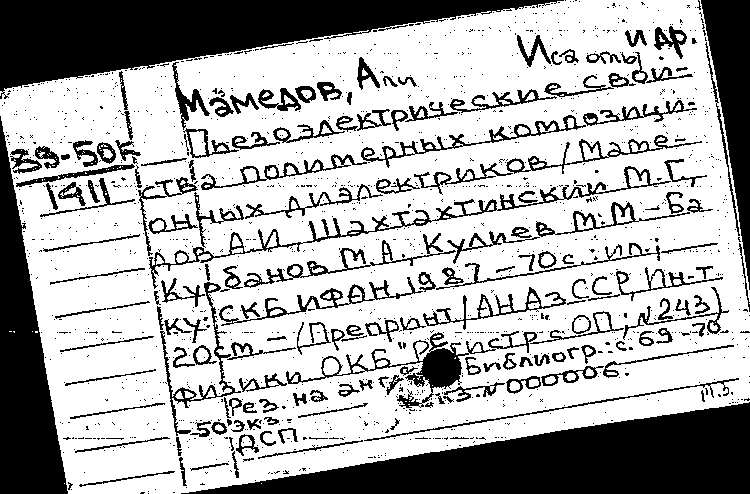 Мамедов, Али Иса оглы и др.
Пьезоэлектрические свой-
89-50К
1411
ства полимерных композици-
онных диэлектриков / Маме-
дов А.И., Шахтахтинский М.Г.,
Курбанов М.А., Кулиев М.М. - Ба
ку: СКБ ИФАН, 1987 - 70 с.: ил.;
20 см. - (Препринт / АН АзССР, Ин-т
физики ОКБ "Регистр" с ОП; № 243)
Рез. на англ. Библиогр.: с. 69-70
- 50 экз. Экз. № 000006.
ДСП.